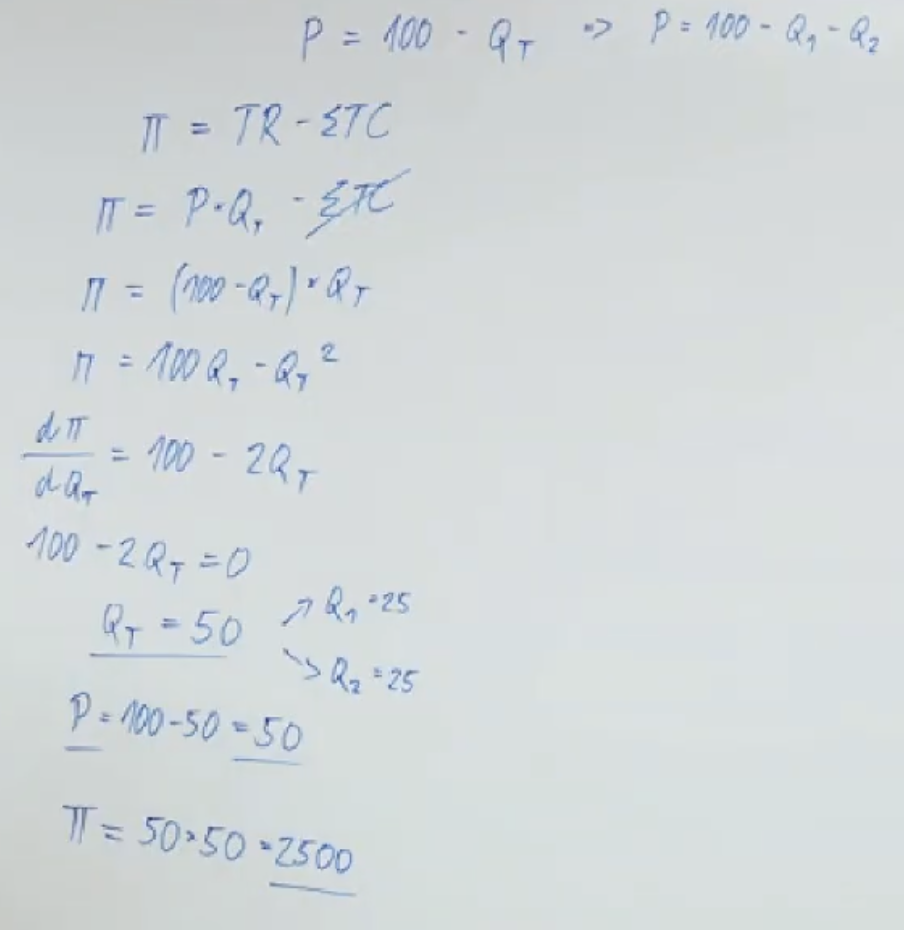 P = 100 - Q_T => P = 100 - Q_1 - Q_2
Π = TR - ΣTC
Π = P·Q_T - ΣTC
Π = (100 - Q_T) · Q_T
Π = 100Q_T - Q_T²
dΠ/dQ_T = 100 - 2Q_T
100 - 2Q_T = 0
Q_T = 50
↗ Q_1 = 25
↘ Q_2 = 25
P = 100 - 50 = 50
Π = 50·50 = 2500